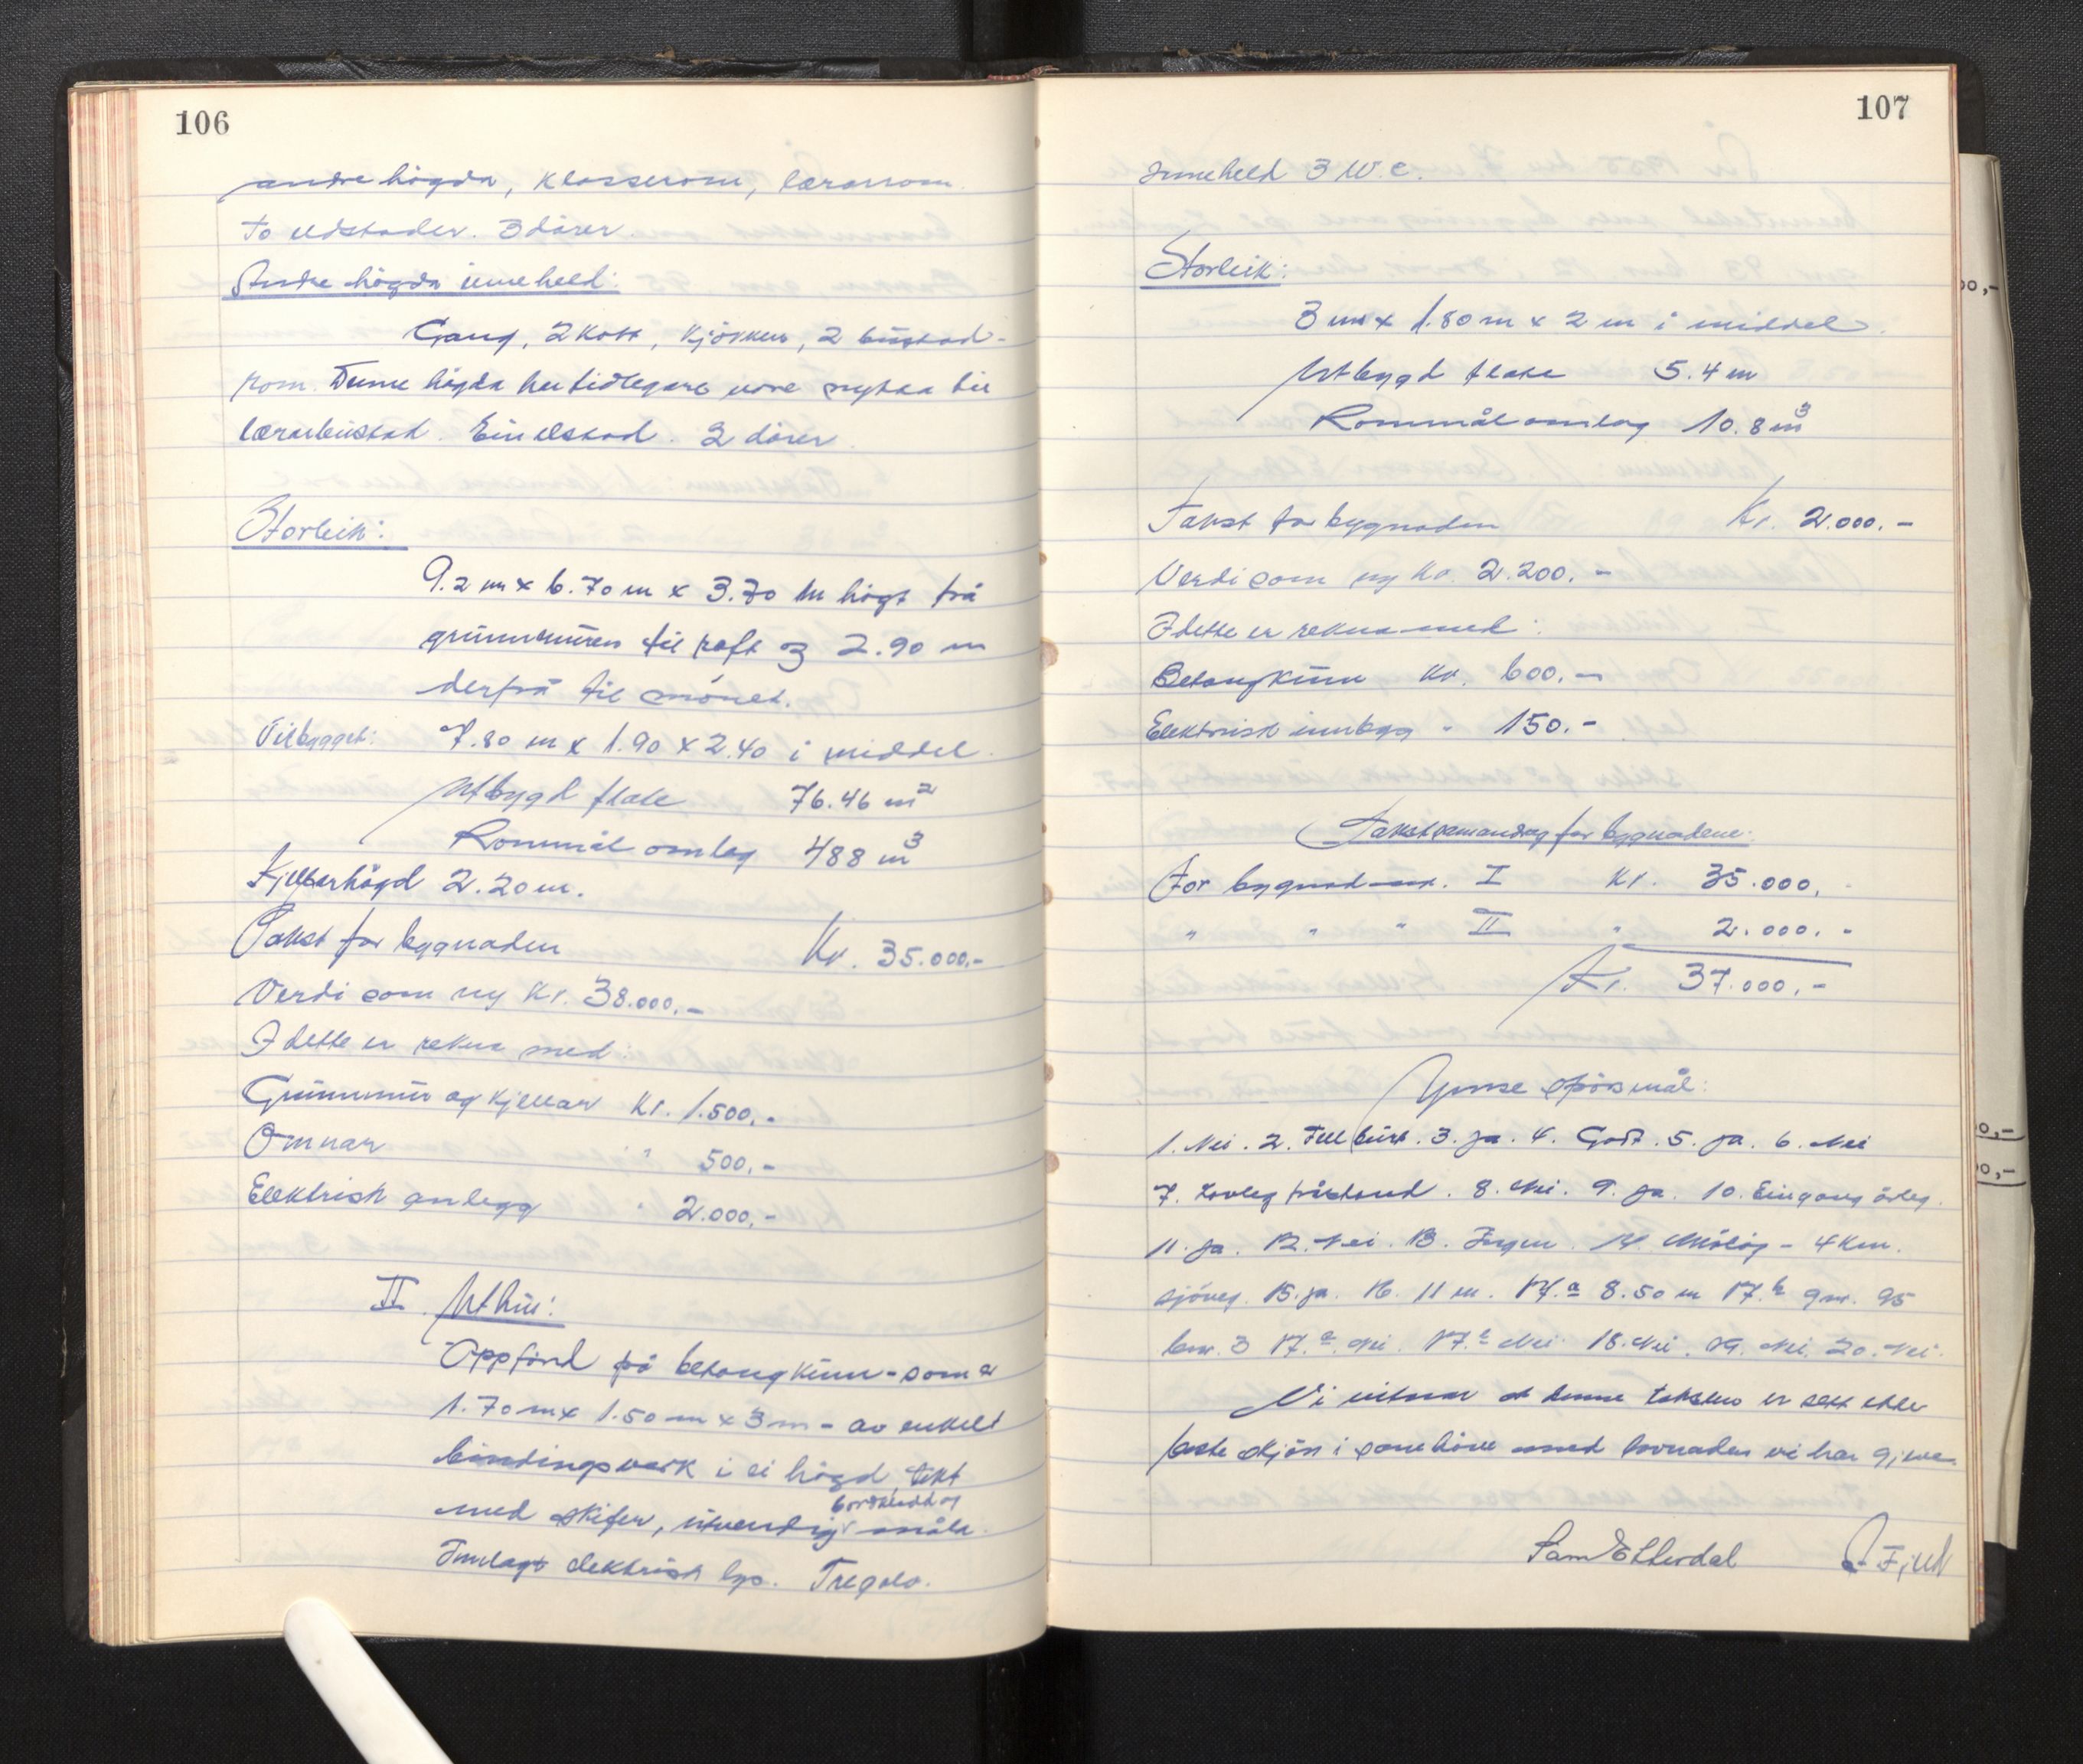 106
andre högda, klasserom, lærarrom.
To eldstader. 3 dörer.
Andre högda inneheld:
Gang, 2 kott, kjökken, 2 bustad-
rom. Denne högda har tidlegare vore nytta til
lærarbustad. Ein eldstad. 2 dörer.
Storleik:
9.2 m x 6.70 m x 3.70 m högt frå
grunnmuren til raft og 2.90 m
derfrå til mönet.
Tilbygget: 7.80 m x 1.90 x 2.40 i middel.
Utbygd flate 76.46 m²
Rommål omlag 488 m³
Kjellarhögd 2.20 m.
Takst for bygnaden Kr. 35.000.-
Verdi som ny Kr. 38.000.-
I dette er rekna med:
Grunnmur og kjellar Kr. 1.500.-
Omnar " 500.-
Elektrisk anlegg " 2.000.-
II. Uthus:
Oppförd på betongkum - som er
1.70 m x 1.50 m x 3 m - av enkelt
bindingsverk i ei högd, tekt
med skifer, utvendig bordkledd og måla.
Innlagt elektrisk lys. Tregolv.
107
Inneheld 3 W.C.
Storleik:
3 m x 1.80 m x 2 m i middel.
Utbygd flate 5.4 m
Rommål omlag 10.8 m³
Takst for bygnaden Kr. 2.000.-
Verdi som ny Kr. 2.200.-
I dette er rekna med:
Betongkum Kr. 600.-
Elektrisk innlegg " 150.-
Takstsamandrag for bygnadene:
For bygnad nr. I Kr. 35.000.-
" " " II " 2.000.-
Kr. 37.000.-
Ymse spörsmål:
1. Nei. 2. Fullført. 3. Ja. 4. Godt. 5. Ja. 6. Nei
7. Lovleg fråstand. 8. Nei. 9. Ja. 10. Eingong årleg.
11. Ja. 12. Nei. 13. Ingen. 14. - 4 km.
sjöveg. 15. Ja. 16. 11 m. 17.a 8.50 m 17.b gnr. 95
bnr. 3 17.c Nei. 17.d Nei. 18. Nei. 19. Nei. 20. Nei.
Vi vitnar at denne taksten er sett etter
beste skjön i samhöve med lovnaden vi har gjeve.
Sam Etterdal